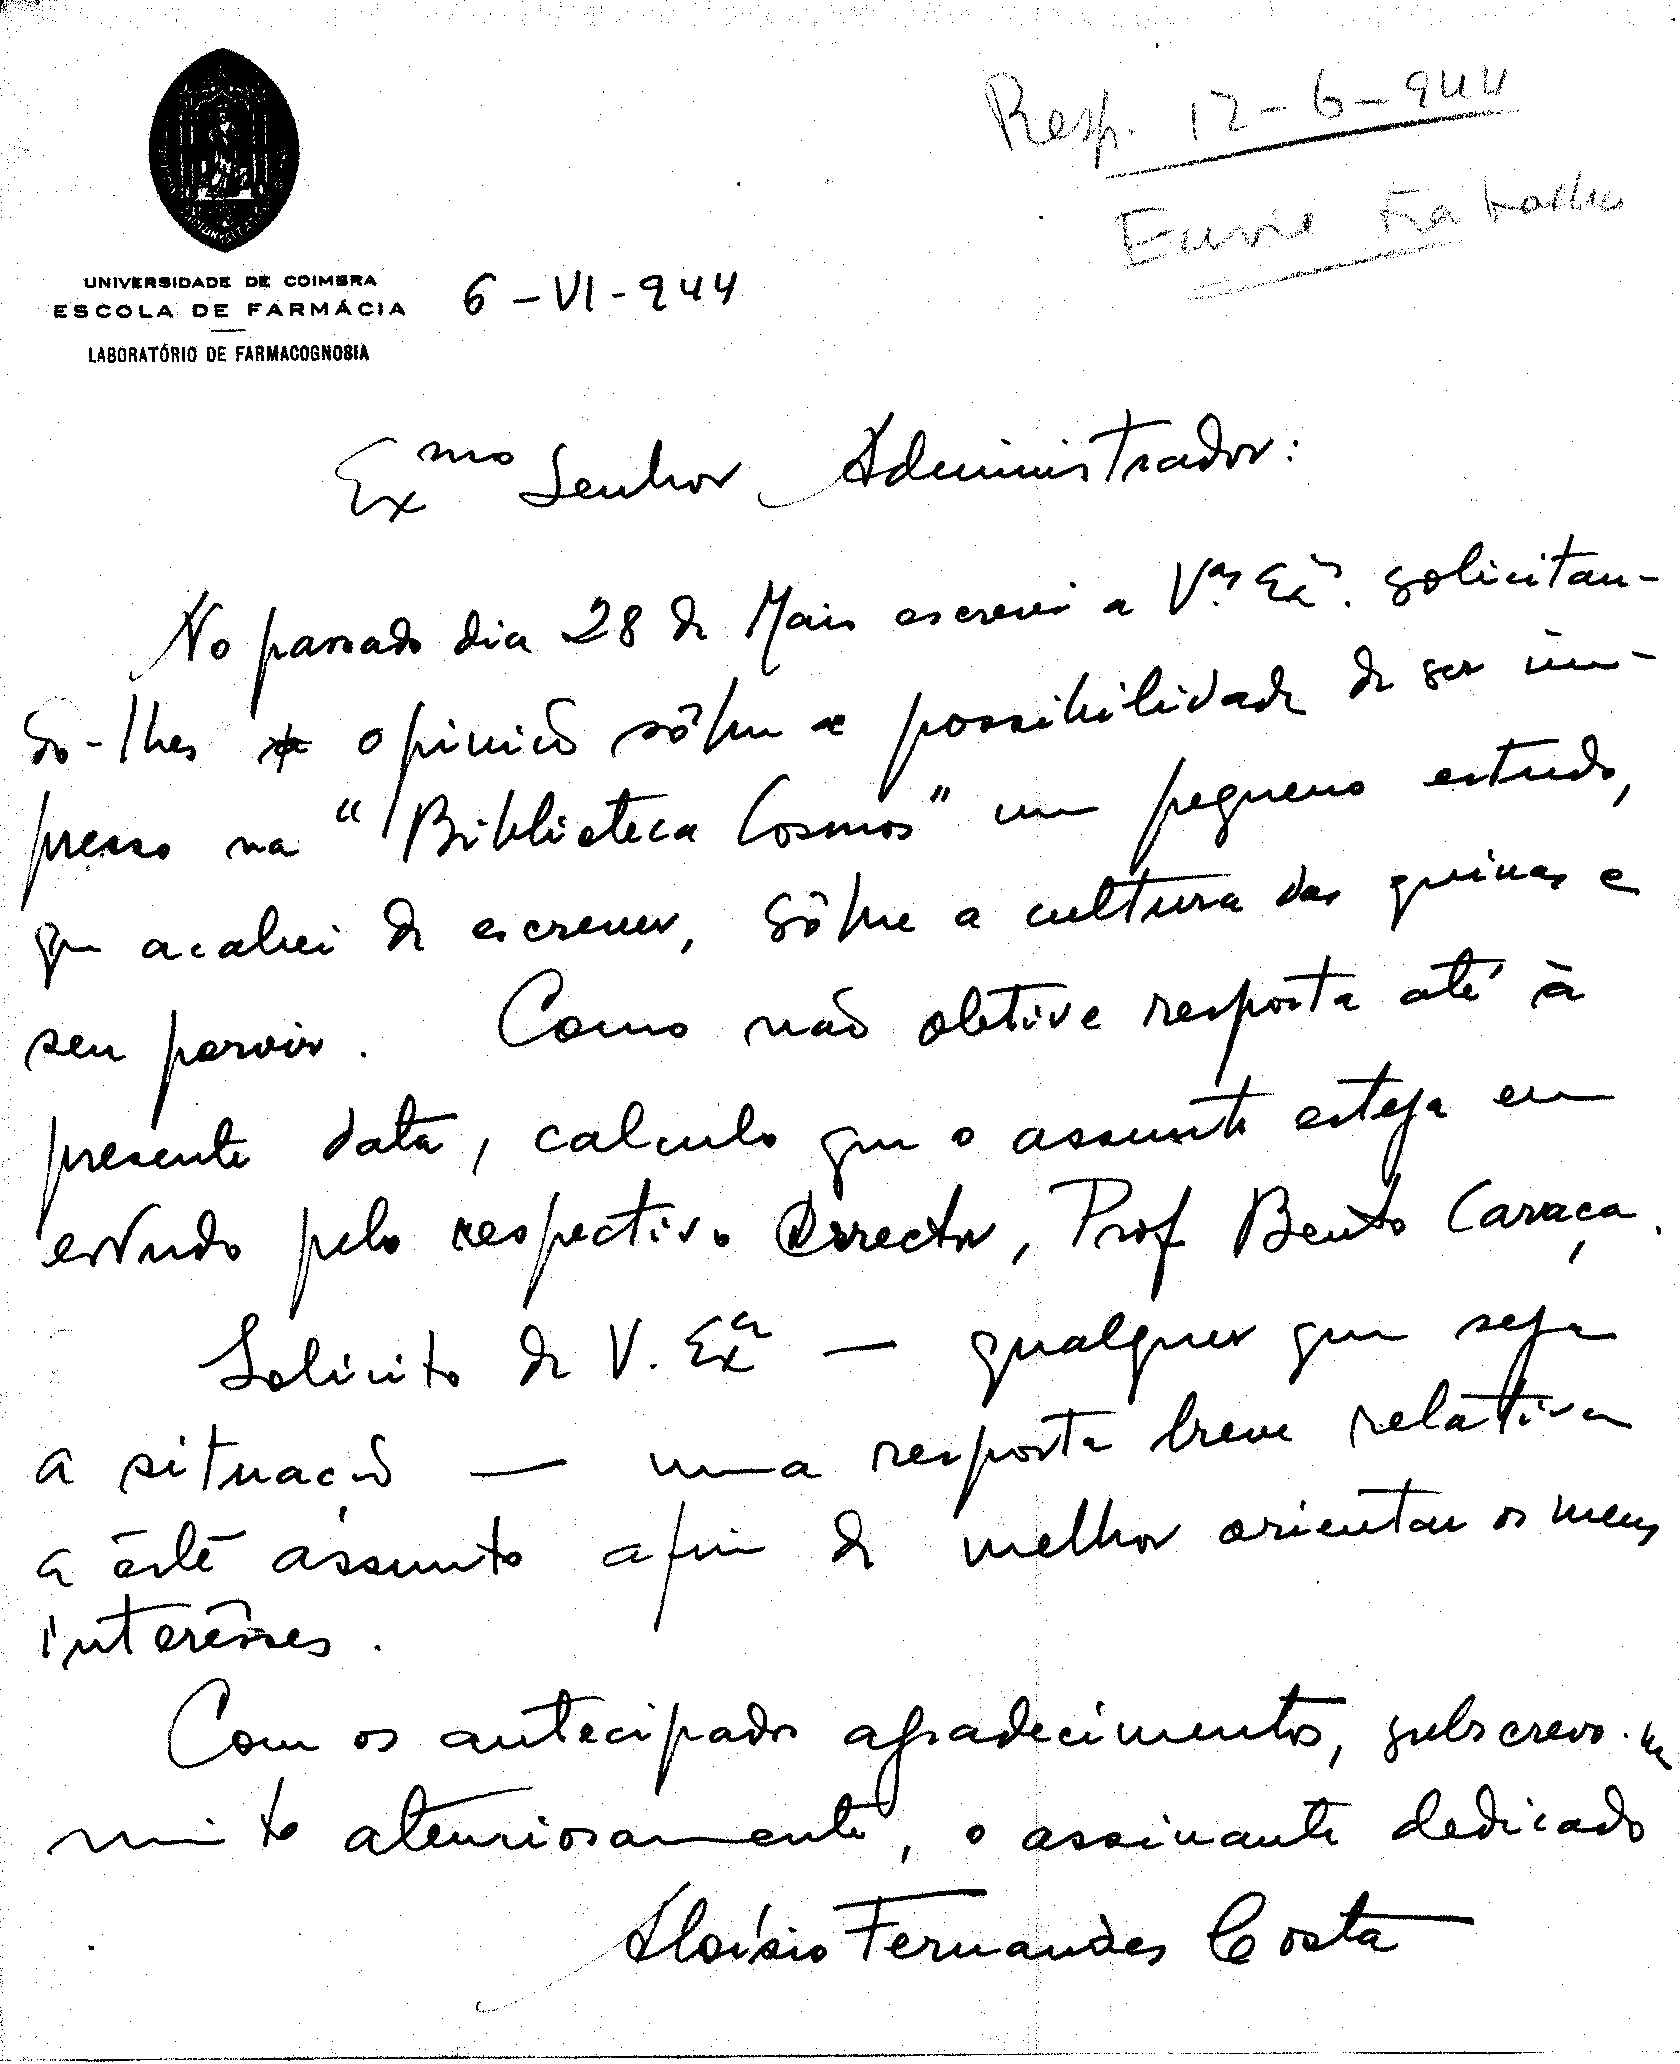 Resp. 12-6-944
Envie trabalho
UNIVERSIDADE DE COIMBRA
ESCOLA DE FARMÁCIA
LABORATÓRIO DE FARMACOGNOSIA
6-VI-944
Exmo Senhor Administrador:
No passado dia 28 de Maio escrevi a V.as Ex.as solicitan-
do-lhes opinião sôbre a possibilidade de ser im-
presso na "Biblioteca Cosmos" um pequeno estudo,
que acabei de escrever, sôbre a cultura das quinas e
seu porvir. Como não obtive resposta até à
presente data, calculo que o assunto esteja em
estudo pelo respectivo Director, Prof Bento Caraça.
Solicito de V. Exa — qualquer que seja
a situação — uma resposta breve relativa
a êste assunto afim de melhor orientar os meus
interêsses.
Com os antecipados agradecimentos, subscrevo-me
muito atenciosamente, o assinante dedicado
Aloísio Fernandes Costa